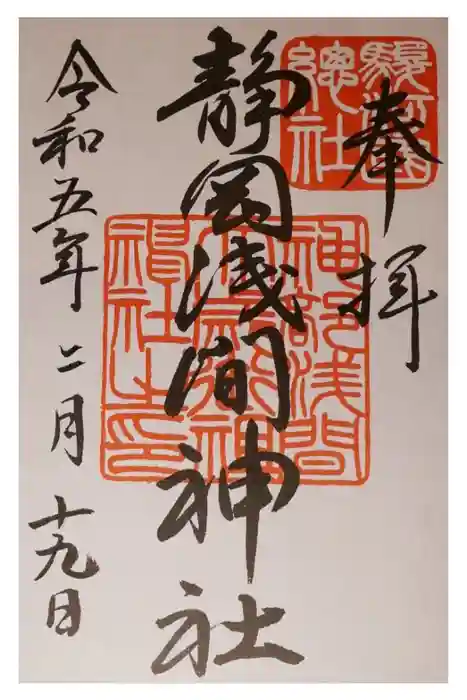 奉拝
駿河國
總社
静岡浅間神社
神部浅間
大歳御祖
神社之印
令和五年二月十九日